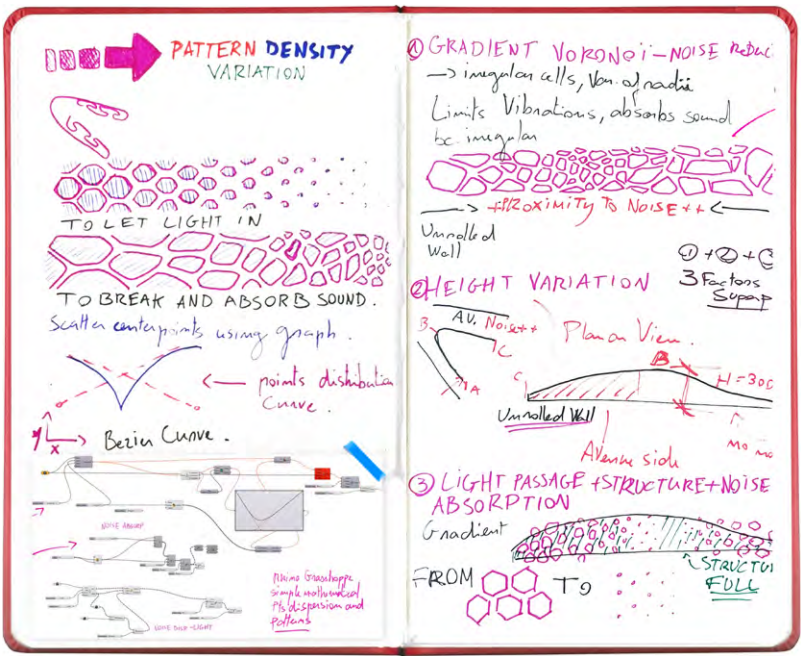 PATTERN DENSITY
VARIATION
TO LET LIGHT IN
TO BREAK AND ABSORB SOUND.
Scatter centerpoints using graph.
points distribution
Curve.
y
x
Bezier Curve.
NOISE ABSORP
Rhino Grasshoppe
simple mathematical
Pts dispersion and
patterns
① GRADIENT VORONOï-NOISE REDUC
→ irregular cells, Var. of radii
Limits Vibrations, absorbs sound
bc. irregular
→ +PROXIMITY TO NOISE++ ←
Unrolled
Wall
① + ② +
3 Factors
Superp
② HEIGHT VARIATION
AV. Noise++
B
C
A
Plan on View.
B
C
H = 300
Unrolled Wall
Avenue side
③ LIGHT PASSAGE +STRUCTURE+NOISE
ABSORPTION
Gradient
STRUCTU
FULL
FROM
TO